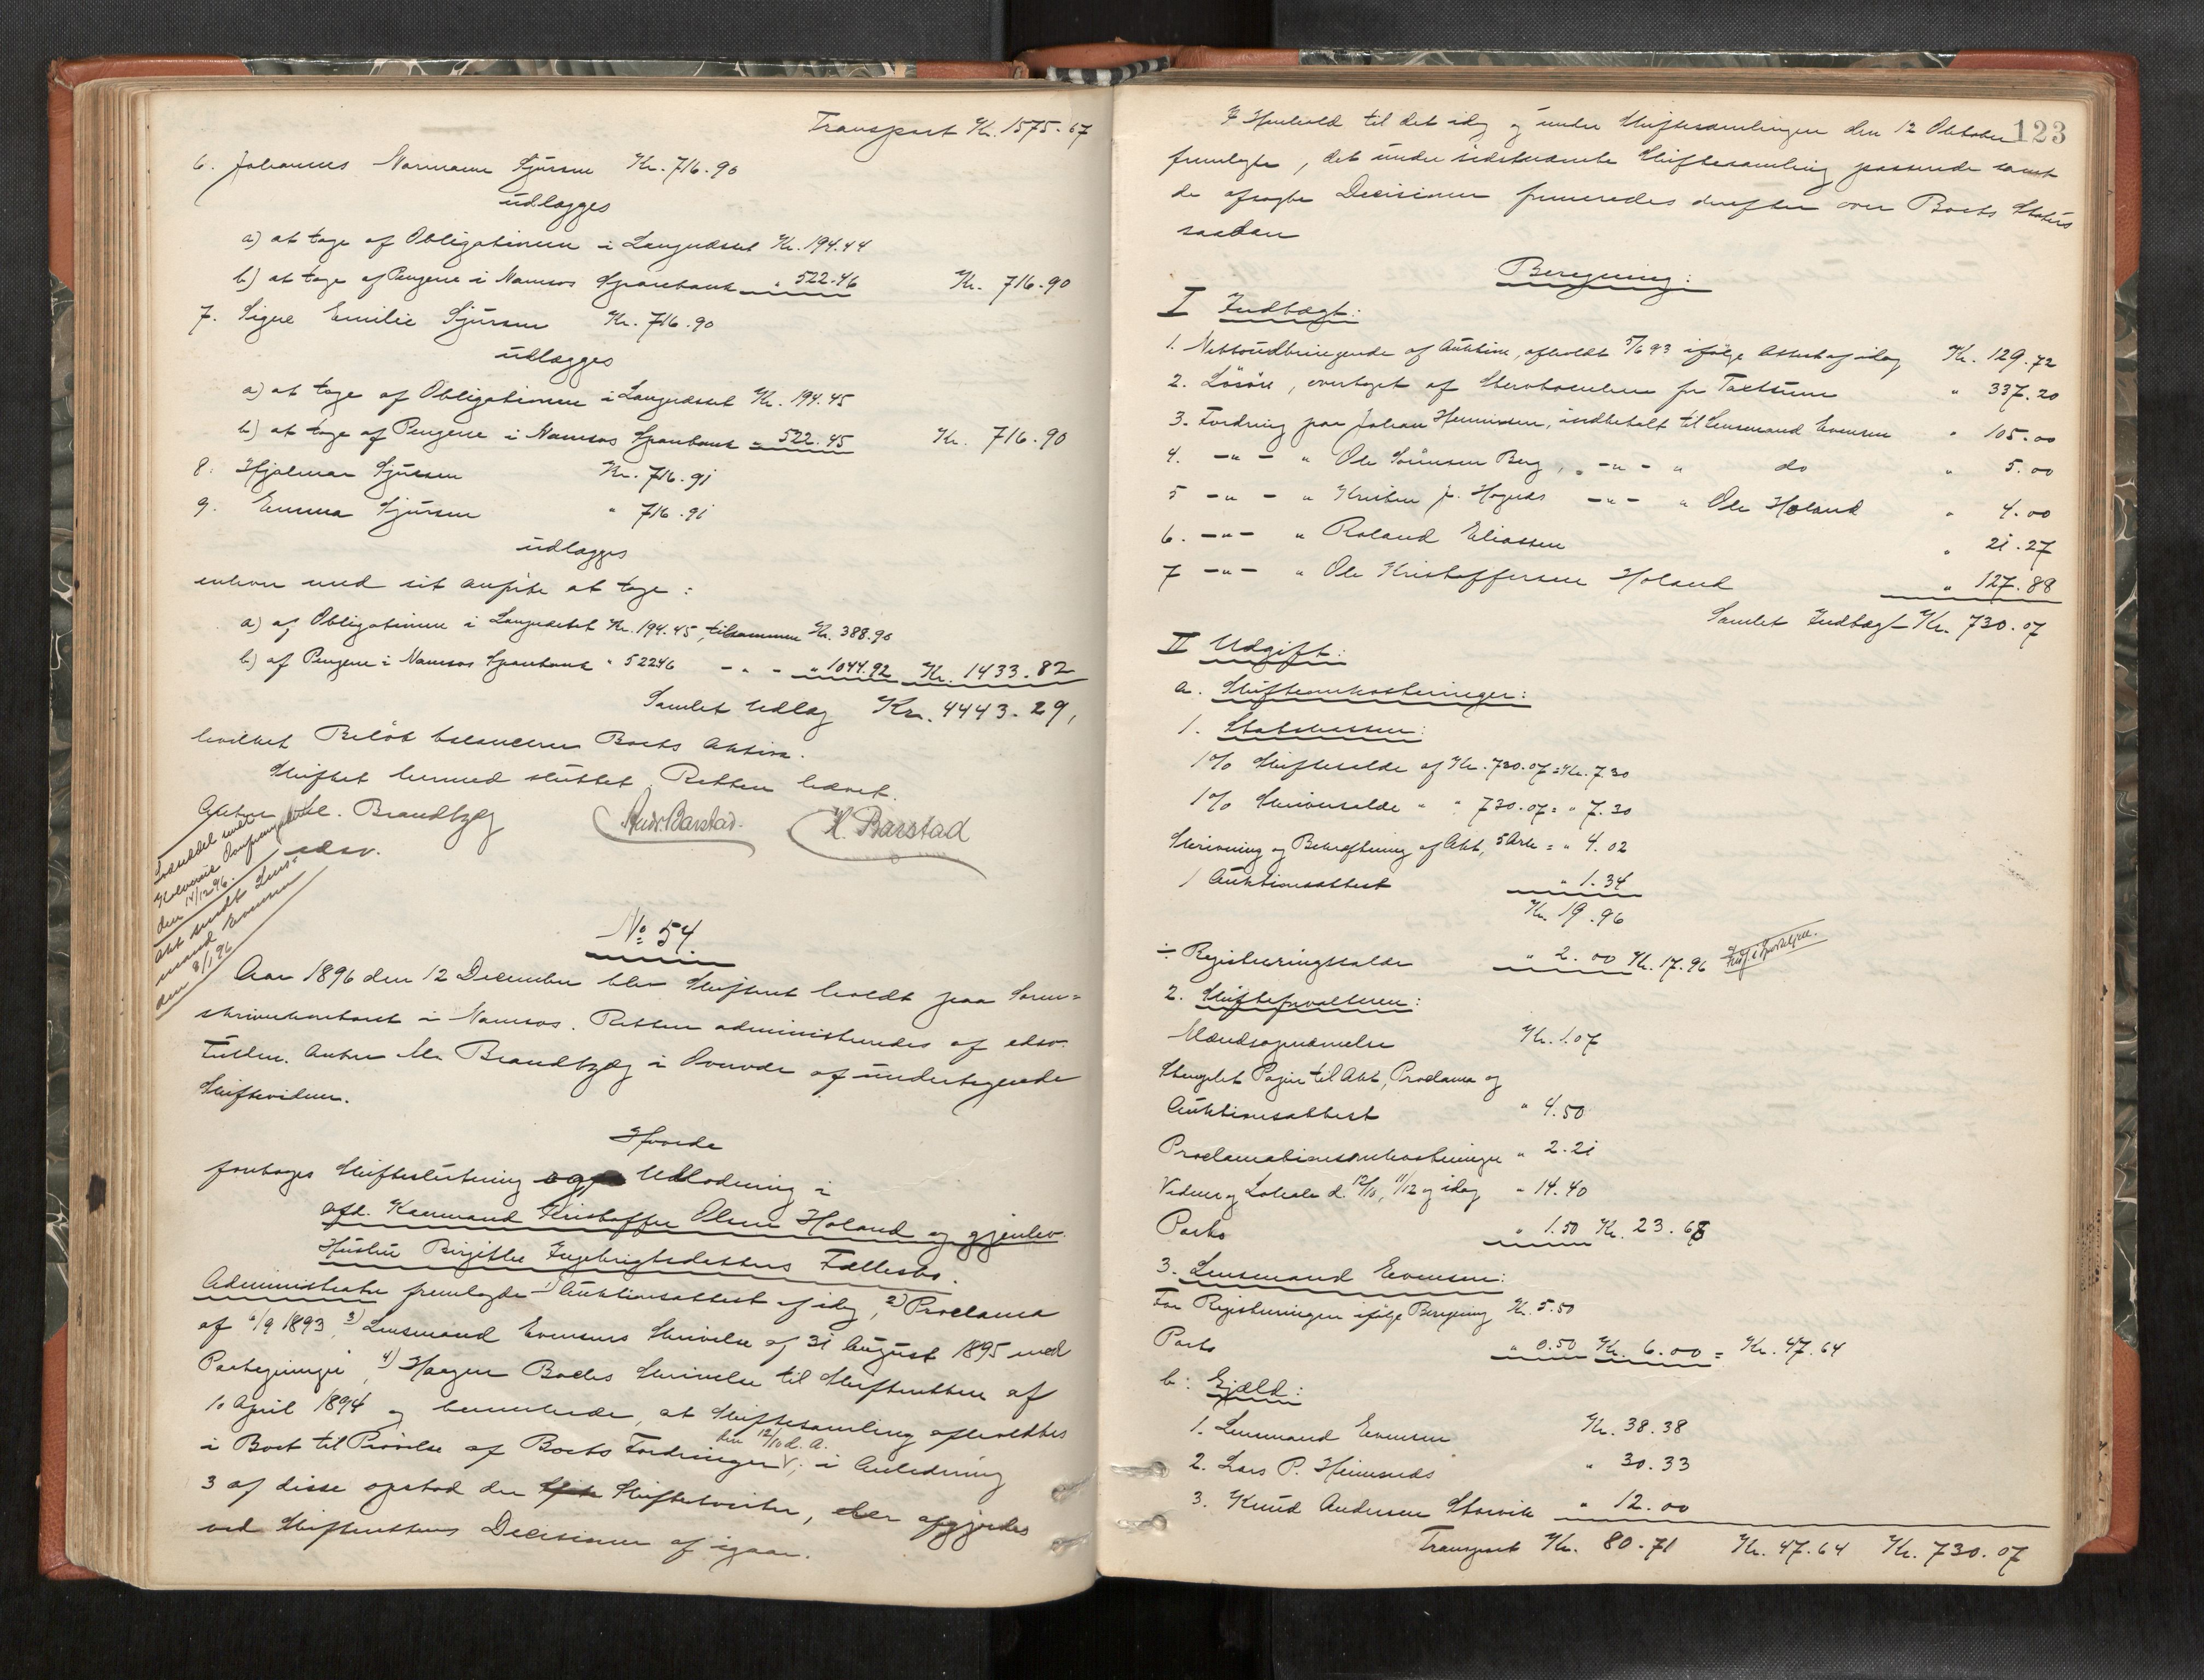 Transport Kr. 1575.67
6. Johannes Normann Sjursen Kr. 716.90
udlægges
a) at tage af Obligationen i Langnæsset Kr. 194.44
b) at tage af Pengene i Namsos Sparebank " 522.46 Kr. 716.90
7. Signe Emilie Sjursen Kr. 716.90
udlægges
a) at tage af Obligationen i Langnæsset Kr. 194.45
b) at tage af Pengene i Namsos Sparebank " 522.45 Kr. 716.90
8. Hjalmar Sjursen Kr. 716.91
9. Emma Sjursen " 716.91
udlægges
enhver med sit anførte at tage:
a) af Obligationen i Langnæsset Kr. 194.45, tilsammen Kr. 388.90
b) af Pengene i Namsos Sparebank " 522.46 - " - " 1044.92 Kr. 1433.82
Samlet Udlæg Kr. 4443.29,
hvilket Beløb balancerer Boets Aktiva.
Skiftet hermed sluttet. Retten hævet.
Anton Chr. Brandtzæg
edsv.
Andr. Barstad. K. Barstad
den 14/12 96.
Akt sendt Lens-
mand Evensen
den 8/1 96
No 54.
Aar 1896 den 12 December blev Skifteret holdt paa Soren-
skriverkontoret i Namsos. Retten administreredes af edsv.
Fuldm. Anton Chr. Brandtzæg i Overvær af undertegnede
Skiftevidner.
Hvorda
foretoges Skifteslutning og Udlodning i
afd. Kaarmand Kristoffer Olsen Høland og gjenlev.
Hustru Birgitte Ingebrigtsdatters Fællesbo.
Administrator fremlagde 1) Auktionsattest af idag, 2) Proclama
af 6/9 1893, 3) Lensmand Evensens Skrivelse af 31 August 1895 med
Paategninger, 4) Haagen Boeles Skrivelse til Skifteretten af
10 April 1894 og bemærkede, at Skiftesamling afholdtes
den 12/10 d. A.
i Boet til Prøvelse af Boets Fordringer; i Anledning
3 af disse opstod der Skiftetvister, der afgjordes
ved Skifterettens Decisioner af igaar.
123
I Henhold til det idag og under Skiftesamlingen den 12 Oktober
fremlagte, det under sidstnævnte Skiftesamling passerede samt
de afsagte Decisioner formeredes derefter over Boets Status
saadan
Beregning:
I Indtægt:
1. Nettoudbringende af Auktion, afholdt 5/6 93 ifølge Attest af idag Kr. 129.72
2. Løsøre, overtaget af Stervboenken for Taxtsum " 337.20
3. Fordring paa Johan Henriksen, indbetalt til Lensmand Evensen " 105.00
4. -"- " Ole Sørensen Berg, " -"- " do " 5.00
5 -"- " Kristen J. Høgnæs -"- " Ole Høland " 4.00
6. -"- " Roland Eliassen " 21.27
7 -"- " Ole Kristoffersen Høland " 127.88
Samlet Indtægt Kr. 730.07
II Udgift:
a. Skifteomkostninger:
1. Statskassen:
1% Skifteafgift af Kr. 730.07 = Kr. 7.30
1% Skriversalær " " 730.07 = " 7.30
Skrivning og Bekræftning af Akt, 5 Ark = " 4.02
1 Auktionsattest " 1.34
Kr. 19.96
÷ Registreringssalær " 2.00 Kr. 17.96
2. Skifteforvalteren:
Mændsopnævnelse Kr. 1.07
Stemplet Papir til Akt, Proclama og
Auktionsattest " 4.50
Proclamationsomkostninger " 2.21
Vidner og Lokale d. 12/10, 11/12 og idag " 14.40
Porto " 1.50 Kr. 23.68
3. Lensmand Evensen:
For Registreringen ifølge Beregning Kr. 5.50
Porto " 0.50 Kr. 6.00 = Kr. 47.64
b: Gjæld:
1. Lensmand Evensen Kr. 38.38
2. Lars P. Heimsnæs " 30.33
3. Knud Andersen Storvik " 12.00
Transport Kr. 80.71 Kr. 47.64 Kr. 730.07